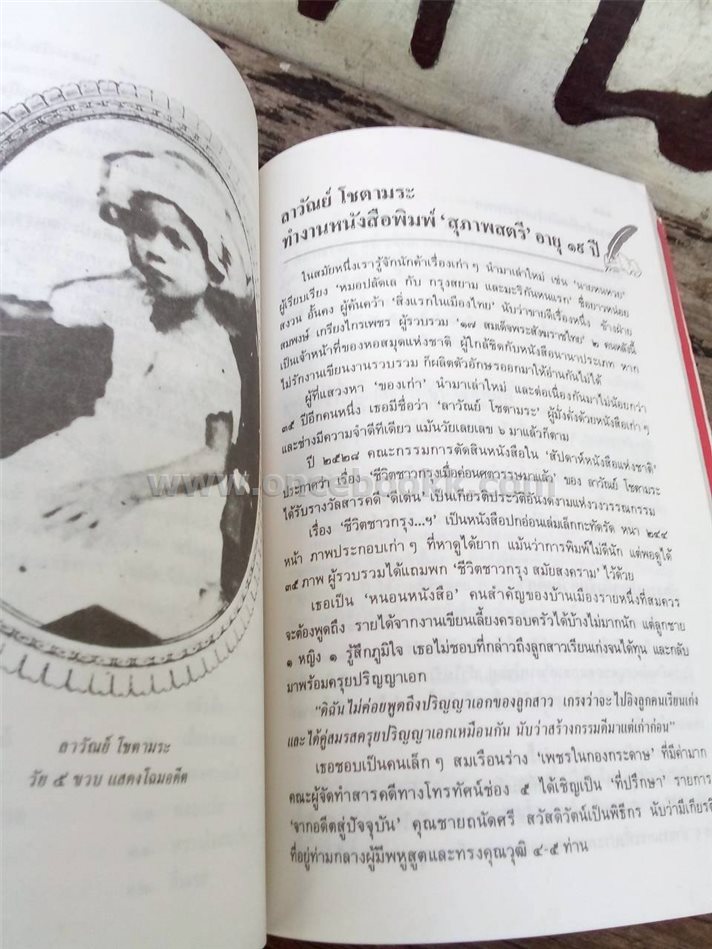 ลาวัณย์ โชตามระ
วัย ๕ ขวบ แสดงโฉมอดีต
ลาวัณย์ โชตามระ
ทำงานหนังสือพิมพ์ 'สุภาพสตรี' อายุ ๑๙ ปี
ในสมัยหนึ่งเรารู้จักนักค้าเรื่องเก่า ๆ นำมาเล่าใหม่ เช่น 'นายหนหวย'
ผู้เรียบเรียง 'หมอปลัดเล กับ กรุงสยาม และมะริกันหนแรก' ชื่อยาวหน่อย
สงวน อั้นคง ผู้ค้นคว้า 'สิ่งแรกในเมืองไทย' นับว่าขายดีเรื่องหนึ่ง ข้างฝ่าย
สมพงษ์ เกรียงไกรเพชร ผู้รวบรวม '๑๗ สมเด็จพระสังฆราชไทย' ๒ คนหลังนี้
เป็นเจ้าหน้าที่ของหอสมุดแห่งชาติ ผู้ใกล้ชิดกับหนังสือนานาประเภท หาก
ไม่รักงานเขียนงานรวบรวม ก็ผลิตตัวอักษรออกมาให้อ่านกันไม่ได้
ผู้ที่แสวงหา 'ของเก่า' นำมาเล่าใหม่ และต่อเนื่องกันมาไม่น้อยกว่า
๓๕ ปีอีกคนหนึ่ง เธอมีชื่อว่า 'ลาวัณย์ โชตามระ' ผู้มั่งคั่งด้วยหนังสือเก่า ๆ
และช่างมีความจำดีทีเดียว แม้นวัยเลยเลข ๖ มาแล้วก็ตาม
ปี ๒๕๒๘ คณะกรรมการตัดสินหนังสือใน 'สัปดาห์หนังสือแห่งชาติ'
ประกาศว่า เรื่อง 'ชีวิตชาวกรุงเมื่อค่อนศตวรรษมาแล้ว' ของ ลาวัณย์ โชตามระ
ได้รับรางวัลสารคดี 'ดีเด่น' เป็นเกียรติประวัติอันงดงามแห่งวงวรรณกรรม
เรื่อง 'ชีวิตชาวกรุง...ฯ' เป็นหนังสือปกอ่อนเล่มเล็กกะทัดรัด หนา ๒๔๔
หน้า ภาพประกอบเก่า ๆ ที่หาดูได้ยาก แม้นว่าการพิมพ์ไม่ดีนัก แต่พอดูได้
๓๕ ภาพ ผู้รวบรวมได้แถมพก 'ชีวิตชาวกรุง สมัยสงคราม' ไว้ด้วย
เธอเป็น 'หนอนหนังสือ' คนสำคัญของบ้านเมืองรายหนึ่งที่สมควร
จะต้องพูดถึง รายได้จากงานเขียนเลี้ยงครอบครัวได้บ้างไม่มากนัก แต่ลูกชาย
๑ หญิง ๑ รู้สึกภูมิใจ เธอไม่ชอบที่กล่าวถึงลูกสาวเรียนเก่งจนได้ทุน และกลับ
มาพร้อมครุยปริญญาเอก
"ดิฉันไม่ค่อยพูดถึงปริญญาเอกของลูกสาว เกรงว่าจะไปอิงลูกคนเรียนเก่ง
และได้คู่สมรสครุยปริญญาเอกเหมือนกัน นับว่าสร้างกรรมดีมาแต่เก่าก่อน"
เธอชอบเป็นคนเล็ก ๆ สมเรือนร่าง 'เพชรในกองกระดาษ' ที่มีค่ามาก
คณะผู้จัดทำสารคดีทางโทรทัศน์ช่อง ๕ ได้เชิญเป็น 'ที่ปรึกษา' รายการ
'จากอดีตสู่ปัจจุบัน' คุณชายถนัดศรี สวัสดิวัตน์เป็นพิธีกร นับว่ามีเกียรติ
ที่อยู่ท่ามกลางผู้มีพหูสูตและทรงคุณวุฒิ ๔-๕ ท่าน